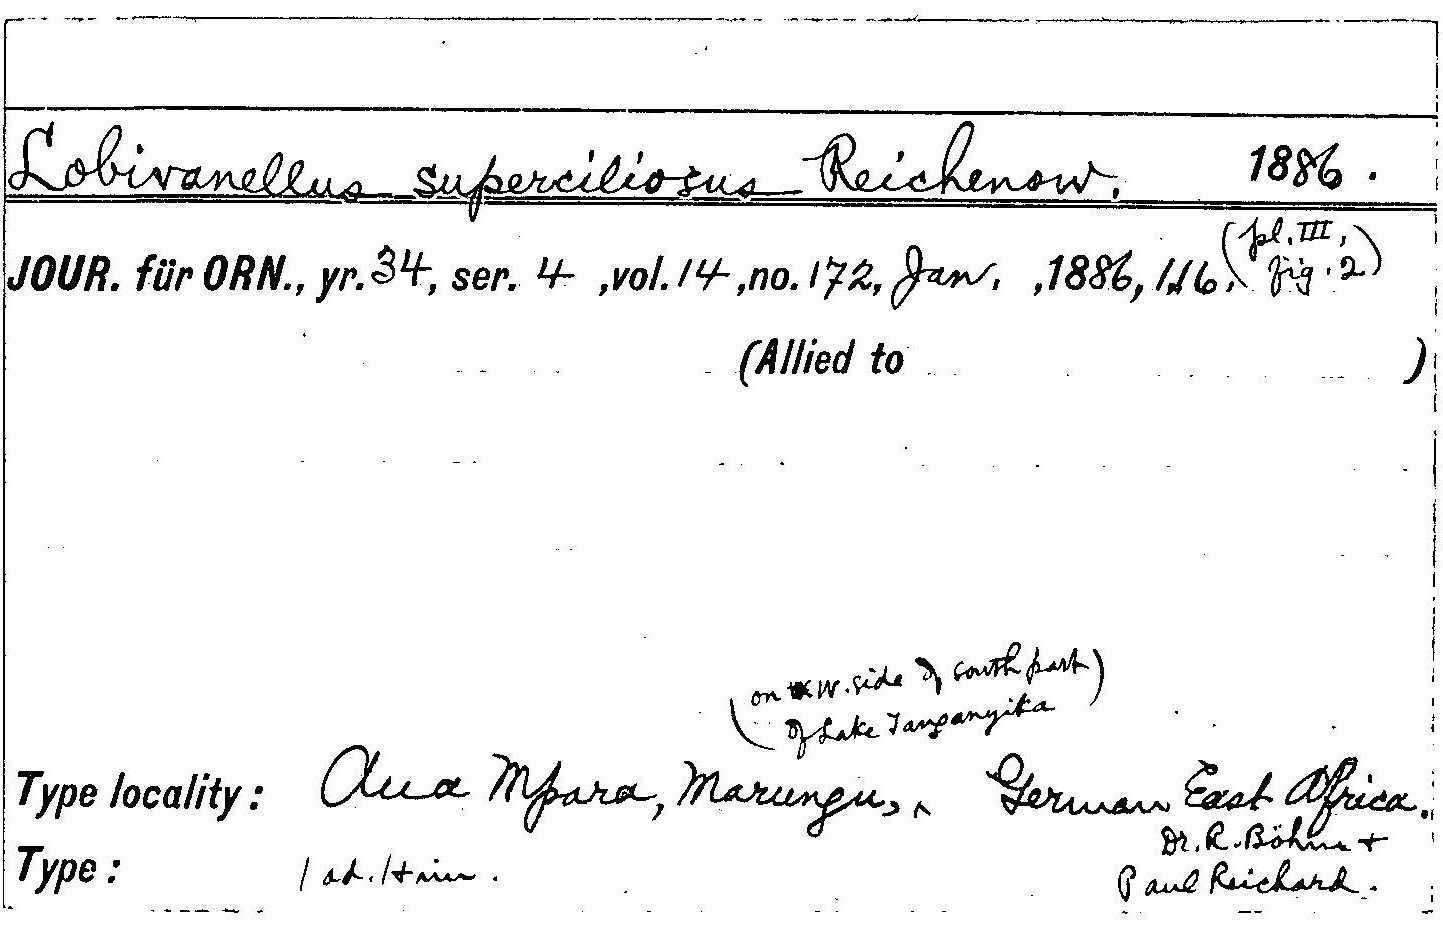 Lobivanellus superciliosus Reichenow. 1886.
JOUR. für ORN., yr. 34, ser. 4 ,vol. 14 ,no. 172, Jan. ,1886, 116. (pl. III, fig. 2)
(Allied to )
(on W. side of south part
of Lake Tanganyika)
Type locality: Qua Mpara, Marungu, ^ German East Africa.
Dr. R. Böhm +
Type: 1 ad. + Paul Reichard.